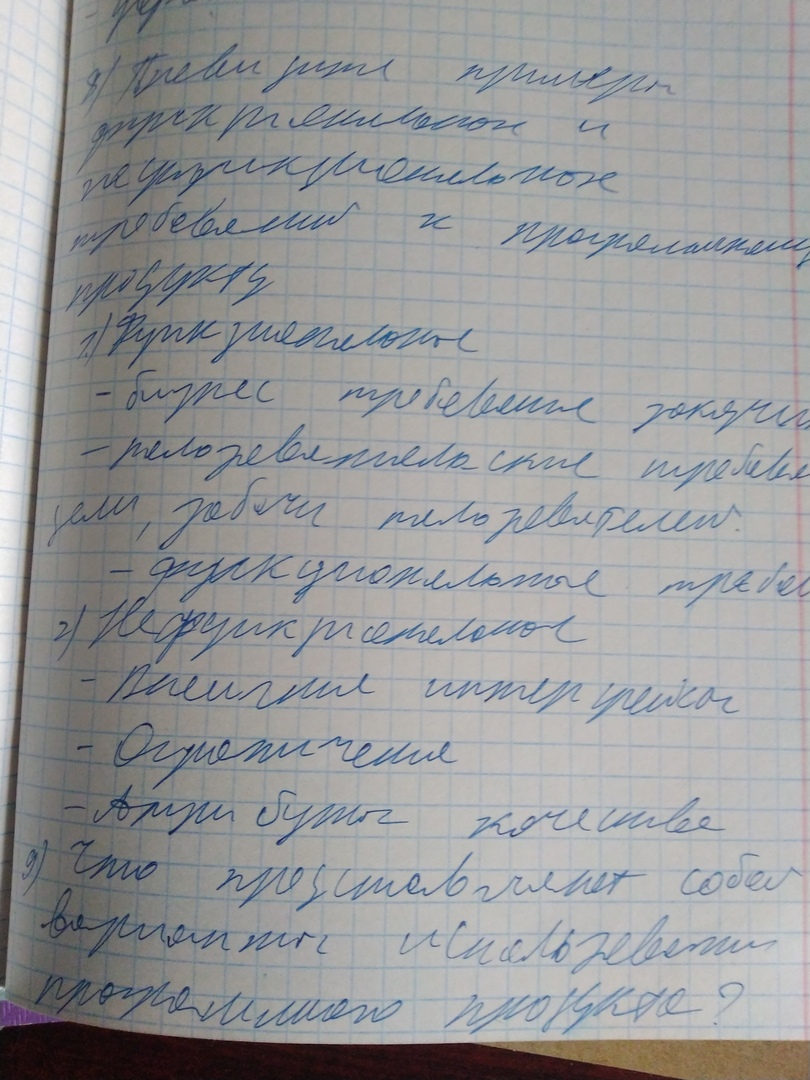 8) Приведите примеры
функциональных и
нефункциональных
требований к программному
продукту
1) Функциональные
- бизнес требования
- пользовательские требова
цели, задачи пользователей.
- функциональные требов
2) Нефункциональные
- Внешние интерфейсы
- Ограничения
- Атрибуты качества
9) Что представляет собой
варианты использования
программного продукта?